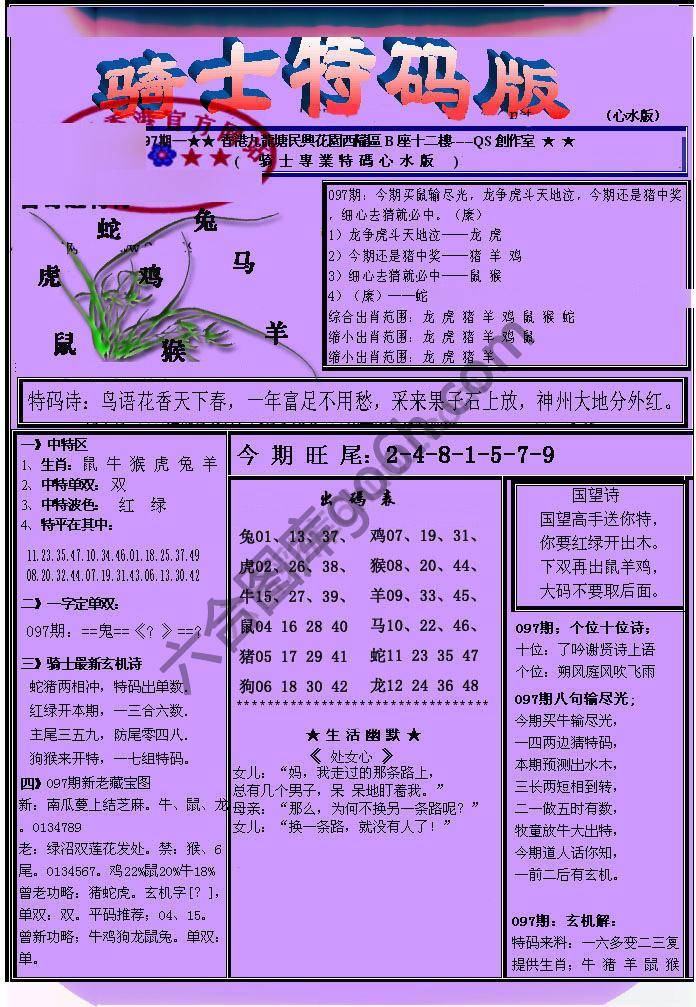 骑士特码版
(心水版)
97期—★★ 香港九龍塘民興花園西福區B座十二樓---QS創作室 ★ ★
( 骑士專業特碼心水版 )
蛇
兔
虎
鸡
马
鼠
猴
羊
097期: 今期买鼠输尽光, 龙争虎斗天地泣, 今期还是猪中奖
, 细心去猜就必中。(廉)
1) 龙争虎斗天地泣——龙 虎
2) 今期还是猪中奖——猪 羊 鸡
3) 细心去猜就必中——鼠 猴
4) (廉)——蛇
综合出肖范围: 龙 虎 猪 羊 鸡 鼠 猴 蛇
缩小出肖范围: 龙 虎 猪 羊 鸡 鼠
缩小出肖范围: 龙 虎 猪 羊
特码诗: 鸟语花香天下春, 一年富足不用愁, 采来果子石上放, 神州大地分外红。
一》中特区
1、生肖: 鼠 牛 猴 虎 兔 羊
2、中特单双: 双
3、中特波色: 红 绿
4、特平在其中:
11.23.35.47.10.34.46.01.18.25.37.49
08.20.32.44.07.19.31.43.06.13.30.42
二》一字定单双:
097期: ==鬼==《? 》==?
三》骑士最新玄机诗
蛇猪两相冲, 特码出单数.
红绿开本期, 一三合六数.
主尾三五九, 防尾零四八.
狗猴来开特, 一七组特码。
四》097期新老藏宝图
新: 南瓜蔓上结芝麻。牛、鼠、龙
。0134789
老: 绿沼双莲花发处。禁: 猴、6
尾。0134567。鸡22%鼠20%牛18%
曾老功略: 猪蛇虎。玄机字[?],
单双: 双。平码推荐; 04、15。
曾新功略; 牛鸡狗龙鼠兔。单双:
单。
今 期 旺 尾: 2-4-8-1-5-7-9
出 码 表
兔01、13、37、 鸡07、19、31、
虎02、26、38、 猴08、20、44、
牛15、27、39、 羊09、33、45、
鼠04 16 28 40 马10、22、46、
猪05 17 29 41 蛇11 23 35 47
狗06 18 30 42 龙12 24 36 48
**********************************
★ 生 活 幽 默 ★
《 处女心 》
女儿: “妈, 我走过的那条路上,
总有几个男子, 呆 呆地盯着我。”
母亲: “那么, 为何不换另一条路呢? ”
女儿: “换一条路, 就没有人了! ”
国望诗
国望高手送你特,
你要红绿开出木。
下双再出鼠羊鸡,
大码不要取后面。
097期; 个位十位诗;
十位: 了吟谢贤诗上语
个位: 朔风庭风吹飞雨
097期八句输尽光;
今期买牛输尽光,
一四两边猜特码,
本期预测出水木,
三长两短相到转,
二一做五时有数,
牧童放牛大出特,
今期道人话你知,
一前二后有玄机。
097期: 玄机解:
特码来料: 一六多变二三复
提供生肖; 牛 猪 羊 鼠 猴
六合图库go6h.com